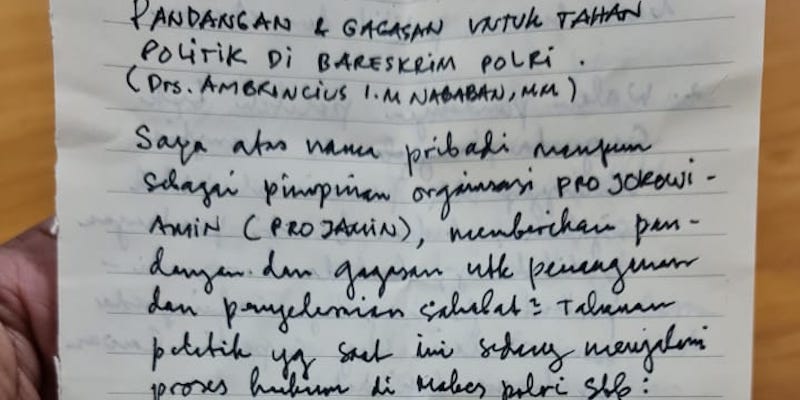 PANDANGAN & GAGASAN UNTUK TAHAN
POLITIK DI BARESKRIM POLRI.
(Drs. AMBRINCIUS I.M NABABAN, MM)
Saya atas nama pribadi maupun
sebagai pimpinan organisasi PRO JOKOWI-
AMIN (PROJAMIN), memberikan pan-
dangan dan gagasan utk penanganan
dan penyelesaian sahabat2 Tahanan
politik yg saat ini sedang mengalami
proses hukum di Mabes polri sbb: